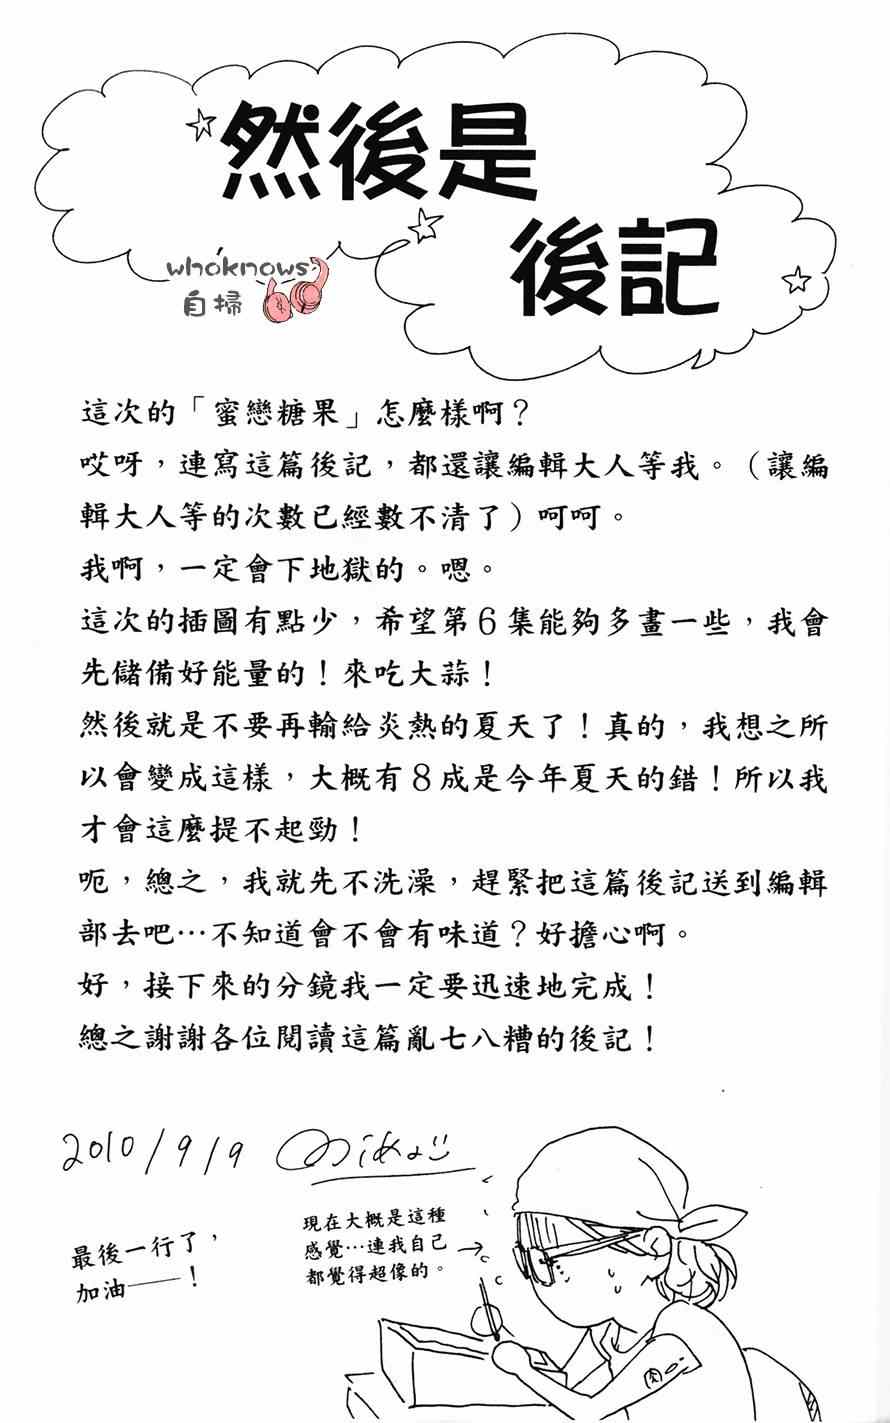 然後是
後記
whoknows
自掃
這次的「蜜戀糖果」怎麼樣啊？
哎呀，連寫這篇後記，都還讓編輯大人等我。（讓編
輯大人等的次數已經數不清了）呵呵。
我啊，一定會下地獄的。嗯。
這次的插圖有點少，希望第6集能夠多畫一些，我會
先儲備好能量的！來吃大蒜！
然後就是不要再輸給炎熱的夏天了！真的，我想之所
以會變成這樣，大概有8成是今年夏天的錯！所以我
才會這麼提不起勁！
呃，總之，我就先不洗澡，趕緊把這篇後記送到編輯
部去吧…不知道會不會有味道？好擔心啊。
好，接下來的分鏡我一定要迅速地完成！
總之謝謝各位閱讀這篇亂七八糟的後記！
2010/9/9
最後一行了，
加油——！
現在大概是這種
感覺…連我自己
都覺得超像的。
肉